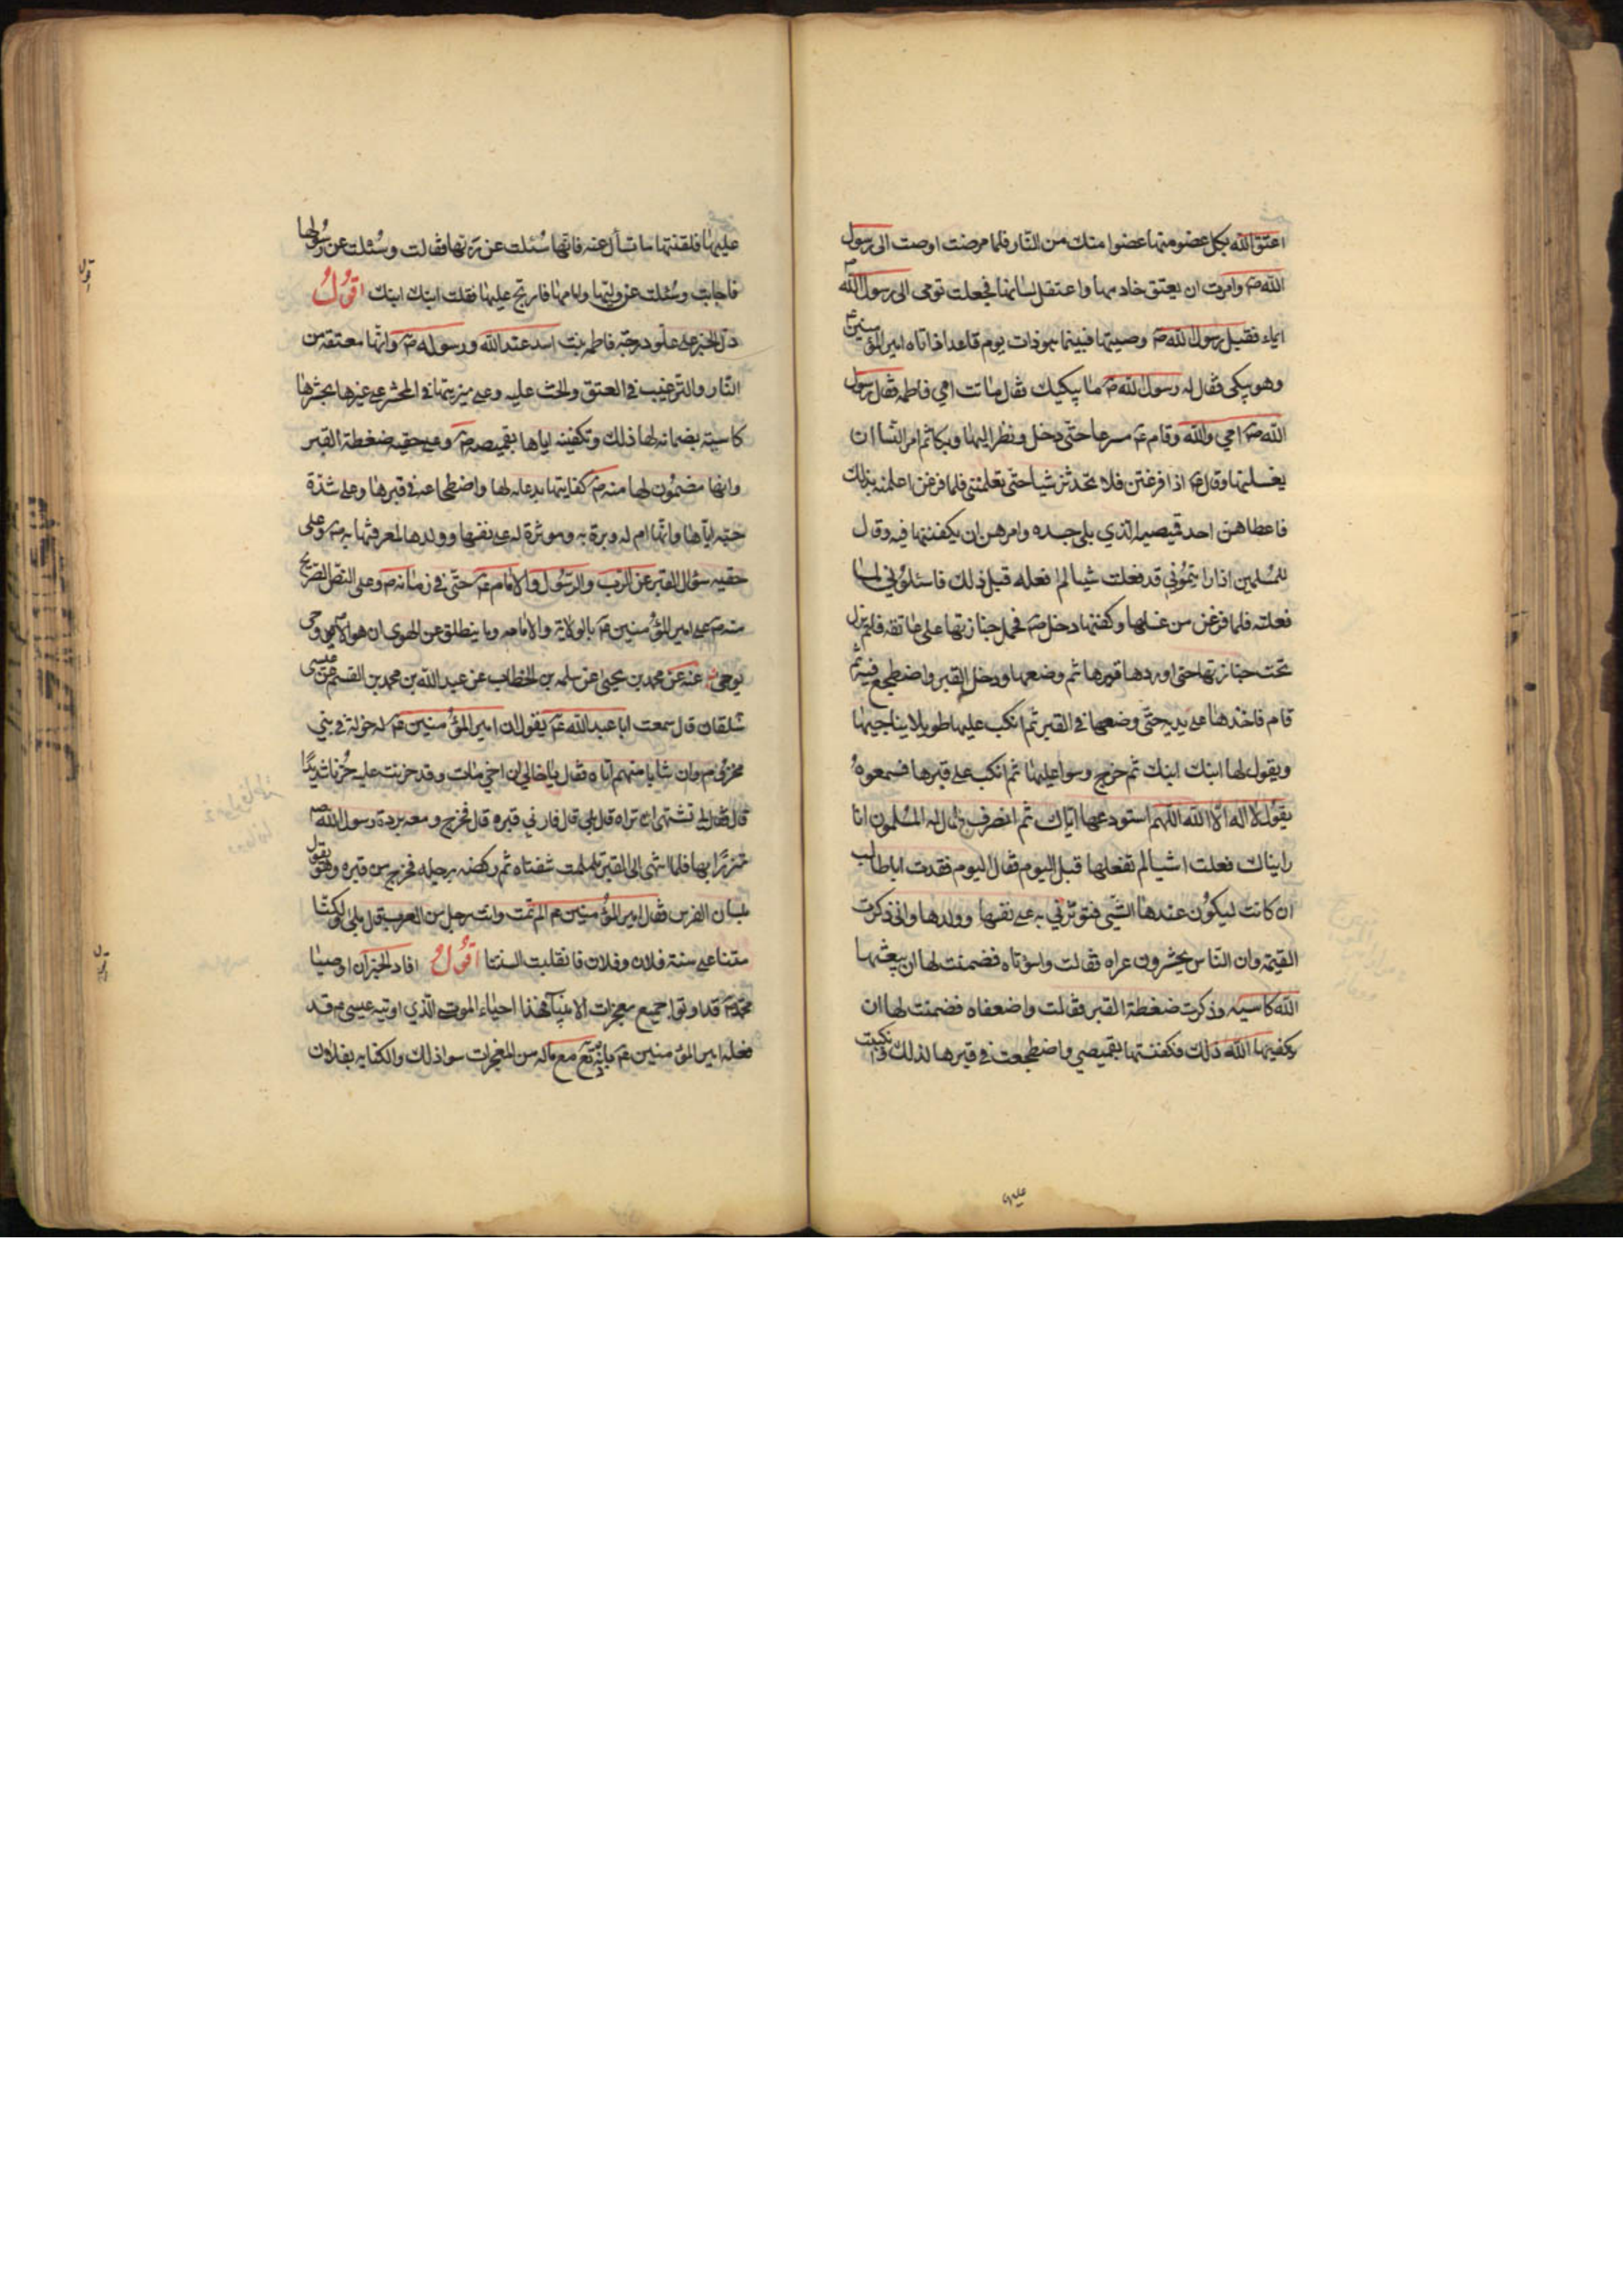 اعتق الله بكل عضو منها عضوا منك من النار فلما مرضت اوصت الى رسول
الله ص وامرت ان يعتق خادمها واعتقل لسانها فجعلت تومى الى رسول الله ص
ايماء فقبل رسول الله ص وصيتها فبينما هو ذات يوم قاعد اذ اتاه امير المؤمنين ع
وهو يبكى فقال له رسول الله ص ما يبكيك فقال ماتت امي فاطمه فقال رسول
الله ص امي والله وقام ع مسرعا حتى دخل ونظر اليها وبكا ثم امر النسا ان
يغسلنها وقال ص اذا فرغتن فلا تحدثن شيا حتى تعلمننى فلما فرغن اعلمنه بذلك
فاعطاهن احد قميصيه الذي يلى جسده وامرهن ان يكفننها فيه وقال
للمسلمين اذا رايتموني قد فعلت شيا لم افعله قبل ذلك فاسئلوني لم
فعلته فلما فرغن من غسلها وكفنها دخل ص فحمل جنازتها على عاتقه فلم يزل
تحت جنازتها حتى اوردها قبرها ثم وضعها ودخل القبر واضطجع فيه ثم
قام فاخذها على يديه حتى وضعها في القبر ثم انكب عليها طويلا يناجيها
ويقول لها ابنك ابنك ثم خرج وسوا عليها ثم انكب على قبرها فسمعوه
يقول لا اله الا الله اللهم استودعها اياك ثم انصرف فقال له المسلمون انا
رايناك فعلت اشيا لم تفعلها قبل اليوم فقال اليوم فقدت ابا طالب
ان كانت ليكون عندها الشيي فتوثرني به على نفسها وولدها واني ذكرت
القيمة وان الناس يحشرون عراه فقالت واسوتاه فضمنت لها ان يبعثها
الله كاسيه وذكرت ضغطة القبر فقالت واضعفاه فضمنت لها ان
يكفيها الله ذلك فكفنتها بقميصي واضطجعت في قبرها لذلك وانكببت
عليها
عليها فلقنتها ما تسأل عنه فانها سئلت عن ربها فقالت وسئلت عن رسولها
فاجابت وسئلت عن وليها وامامها فارتج عليها فقلت ابنك ابنك اقول
دل الخبر على علو درجة فاطمه بنت اسد عند الله ورسوله ص وانها معتقه من
النار والترغيب في العتق والحث عليه وعلى مزيتها في المحشر على غيرها بحشرها
كاسيه بضمانه لها ذلك وتكفينه اياها بقميصه ص وعلى حقيه ضغطة القبر
وانها مضمون لها منه ص كفايتها بدعائه لها واضطجاعه في قبرها وعلى شدة
حبه اياها وانها ام له وبرة به وموثرة له على نفسها وولدها لمعرفتها به ص وعلى
حقيه سؤال القبر عن الرب والرسول والامام ع حتى في زمانه ص وعلى النص الصريح
منه ص على امير المؤمنين ع بالولاية والامامه وما ينطلق عن الهوى ان هو الا وحى
يوحى عنه عن محمد بن يحيى عن سلمه بن الخطاب عن عبد الله بن محمد بن القسم عن عيسى
شلقان قال سمعت ابا عبد الله ع يقول ان امير المؤمنين ع له خولة في بني
مخزوم وان شابا منهم اتاه فقال يا خالي ان اخي مات وقد حزنت عليه حزنا شديدا
قال فقال له تشتهى ان تراه قال بلى قال فارني قبره قال فخرج ومعه بردة رسول الله ص
متزرا بها فلما انتهى الى القبر تلملمت شفتاه ثم ركضه برجله فخرج من قبره وهو يقول
بلسان الفرس فقال امير المؤمنين ع الم تمت وانت رجل من العرب قال بلى ولكنا
متنا على سنة فلان وفلان فانقلبت السنتنا اقول افاد الخبر ان اوصيا
محمد ص قد اوتوا جميع معجزات الانبيآ فهذا احياء الموتى الذي اوتيه عيسى ع قد
فعله امير المؤمنين ع مع ماله من المعجزات سوا ذلك والكنايه بفلان